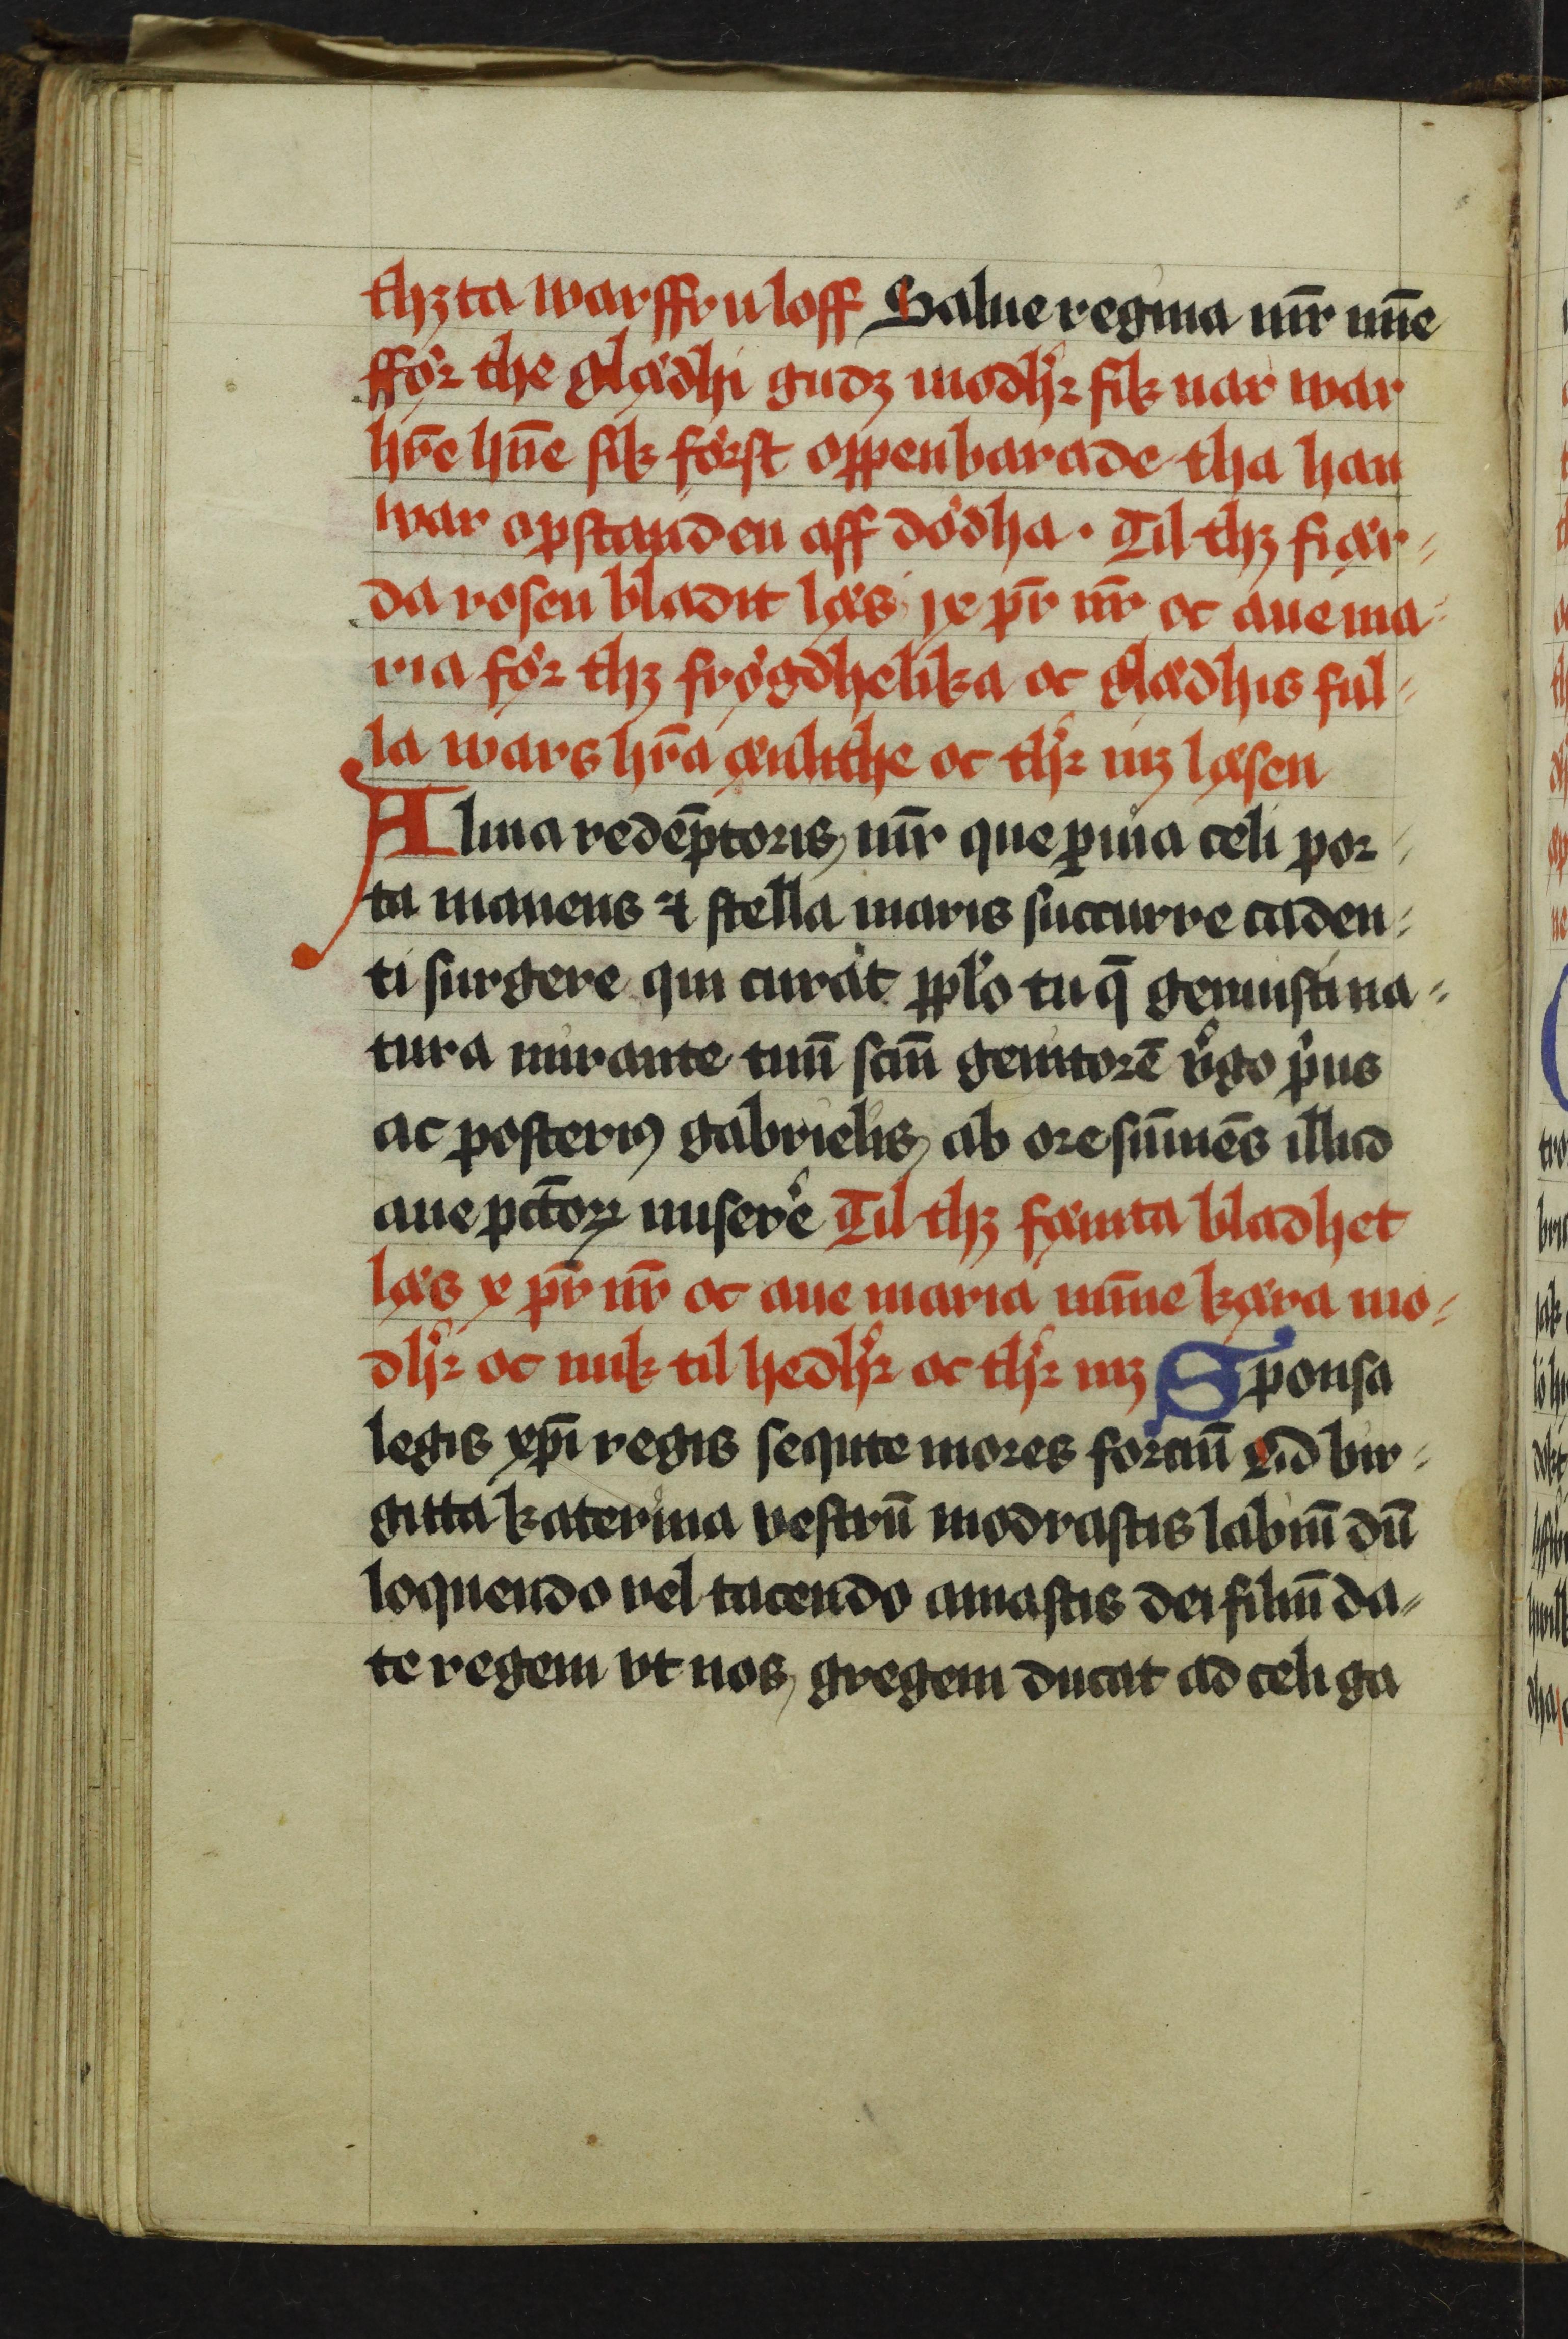 thꝫta war ffru loff Salue regina mr̄ mīe
ffőr the glædhi gudꝫ modhꝛ̉ fik nar war
hr̄e hn̄e sik főrst oppenbarade tha han
war opstanden aff dődha · Til thꝫ fiær⸗
da rosen bladit læs ix pr̄ nr̄ oc aue ma⸗
ria főr thꝫ frőgdhelika oc glædhis ful⸗
la wars hr̄a ænlithe oc thꝛ̉ mꝫ læsen
Alma redēptoris mr̄ que ꝑuia celi por⸗
ta manens ⁊ stella maris succurre caden⸗
ti surgere qui curat pplỏ tu q̄ genuisti na⸗
tura mirante tuū scm̄ genitorē v̉go p̉us
ac posteriꝰ gabrielis ab ore sūmēs illud
aue pctōꝝ miserer̉e Til thꝫ fæmta bladhet
læs x pr̄ nr̄ oc aue maria mīne kæra mo⸗
dhꝛ̉ oc mik til hedhꝛ̉ oc thꝛ̉ mꝫ Sponsa
legis xp̄i regis sequte mores forciū Cū bir⸗
gitta katerina vestrū modrastis labiū dū
loquendo vel tacendo amastis dei filiū da⸗
te regem vt nos gregem ducat ad celi ga